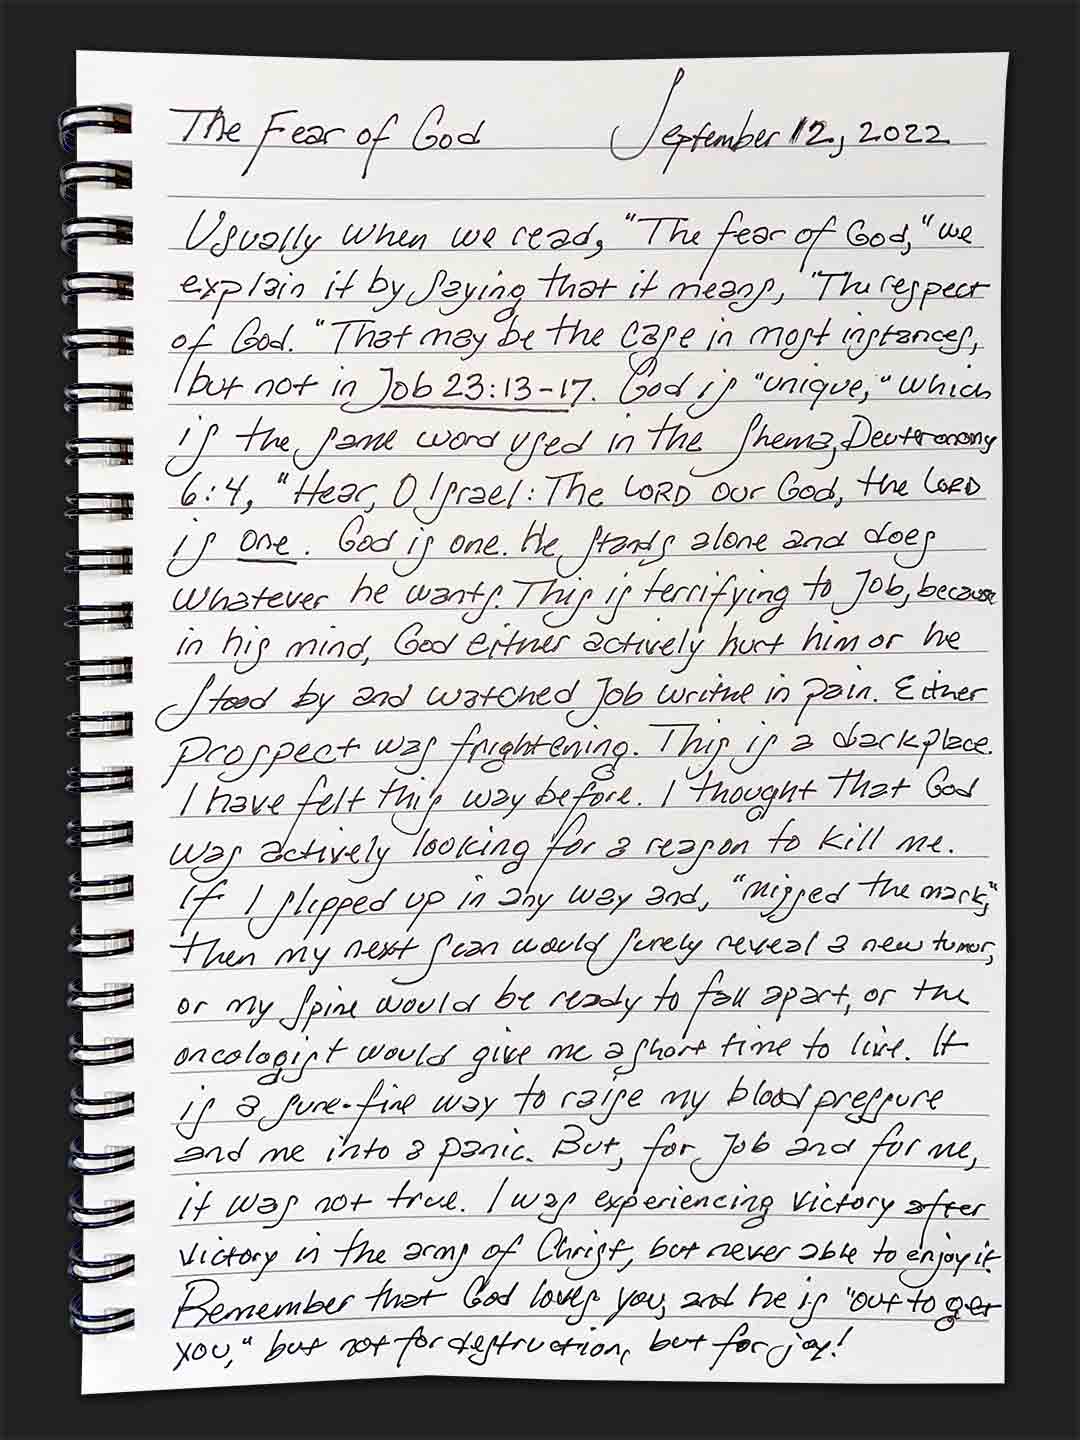 The Fear of God September 12, 2022
Usually when we read, "The fear of God," we
explain it by saying that it means, "The respect
of God." That may be the case in most instances,
but not in Job 23:13-17. God is "unique," which
is the same word used in the Shema, Deuteronomy
6:4, "Hear, O Israel: The LORD our God, the LORD
is one. God is one. He stands alone and does
whatever he wants. This is terrifying to Job, because
in his mind, God either actively hurt him or he
stood by and watched Job writhe in pain. Either
prospect was frightening. This is a dark place.
I have felt this way before. I thought that God
was actively looking for a reason to kill me.
If I slipped up in any way and, "missed the mark,"
then my next scan would surely reveal a new tumor,
or my spine would be ready to fall apart, or the
oncologist would give me a short time to live. It
is a sure-fire way to raise my blood pressure
and me into a panic. But, for Job and for me,
it was not true. I was experiencing victory after
victory in the arms of Christ, but never able to enjoy it.
Remember that God loves you, and he is "out to get
you," but not for destruction, but for joy!